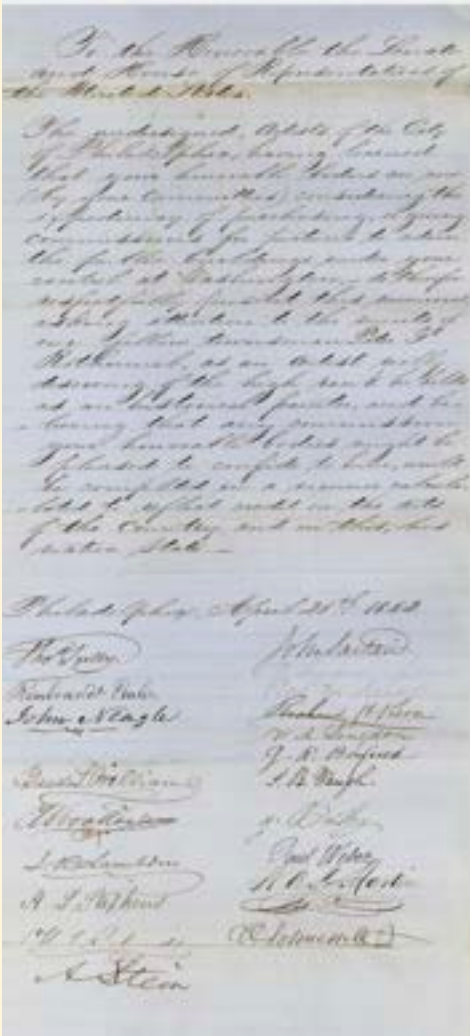 To the Honorable the Senate
and House of Representatives of
the United States.
The undersigned, Artists of the City
of Philadelphia, having learned
that your honorable bodies are now
by your Committees, considering the
expediency of purchasing, or giving
commissions for pictures to adorn
the public buildings under your
control at Washington, do therefore
respectfully present this memorial
asking attention to the merits of
our fellow townsman Peter F.
Rothermel, as an artist well
deserving of the high rank he holds
as an historical painter, and be-
lieving that any commission
your honorable bodies might be
pleased to confide to him, would
be completed in a manner calcu-
lated to reflect credit on the arts
of the Country and on this, his
native State.
Philadelphia, April 28th 1852
Thos Sully
John Sartain
Rembrandt Peale
John Neagle
S. B. Waugh
Isaac L. Williams
J. R. Lambdin
Paul Weber
A Stein